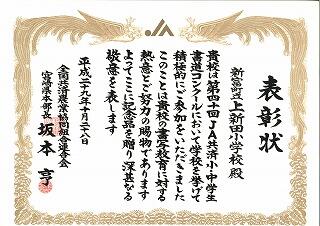 表彰状
新富町立上新田小学校殿
貴校は第四十回JA共済小・中学生
書道コンクールにおいて学校を挙げて
積極的にご参加をいただきました
このことは貴校の書写教育に対する
熱意とご努力の賜物であります
よってここに記念品を贈り深甚なる
敬意を表します
平成二十九年十月二十八日
全国共済農業協同組合連合会
宮崎県本部長 坂本 亨